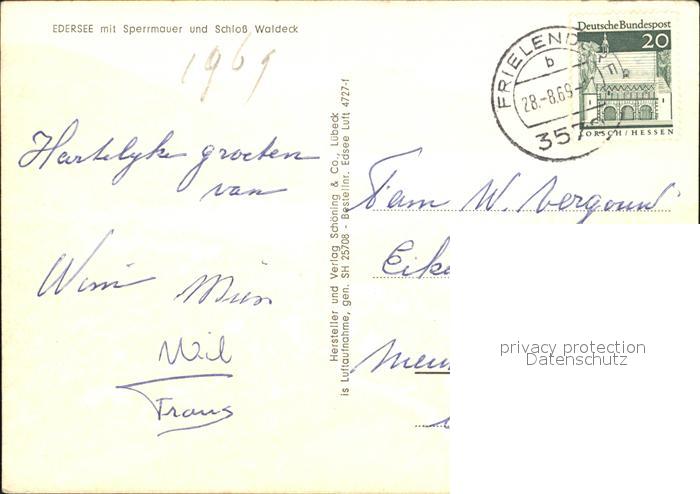 EDERSEE mit Sperrmauer und Schloß Waldeck
1969
Hartelyke groeten
van
Wim Mien
Wil
Frans
Hersteller und Verlag Schöning & Co., Lübeck
is Luftaufnahme, gen. SH 25708 - Bestellnr. Edsee Luft 4727-f
FRIELENDORF
b
28.-8.69-
357
Deutsche Bundespost
20
LORSCH/HESSEN
Fam W. Vergouw
Eike
privacy protection
Datenschutz